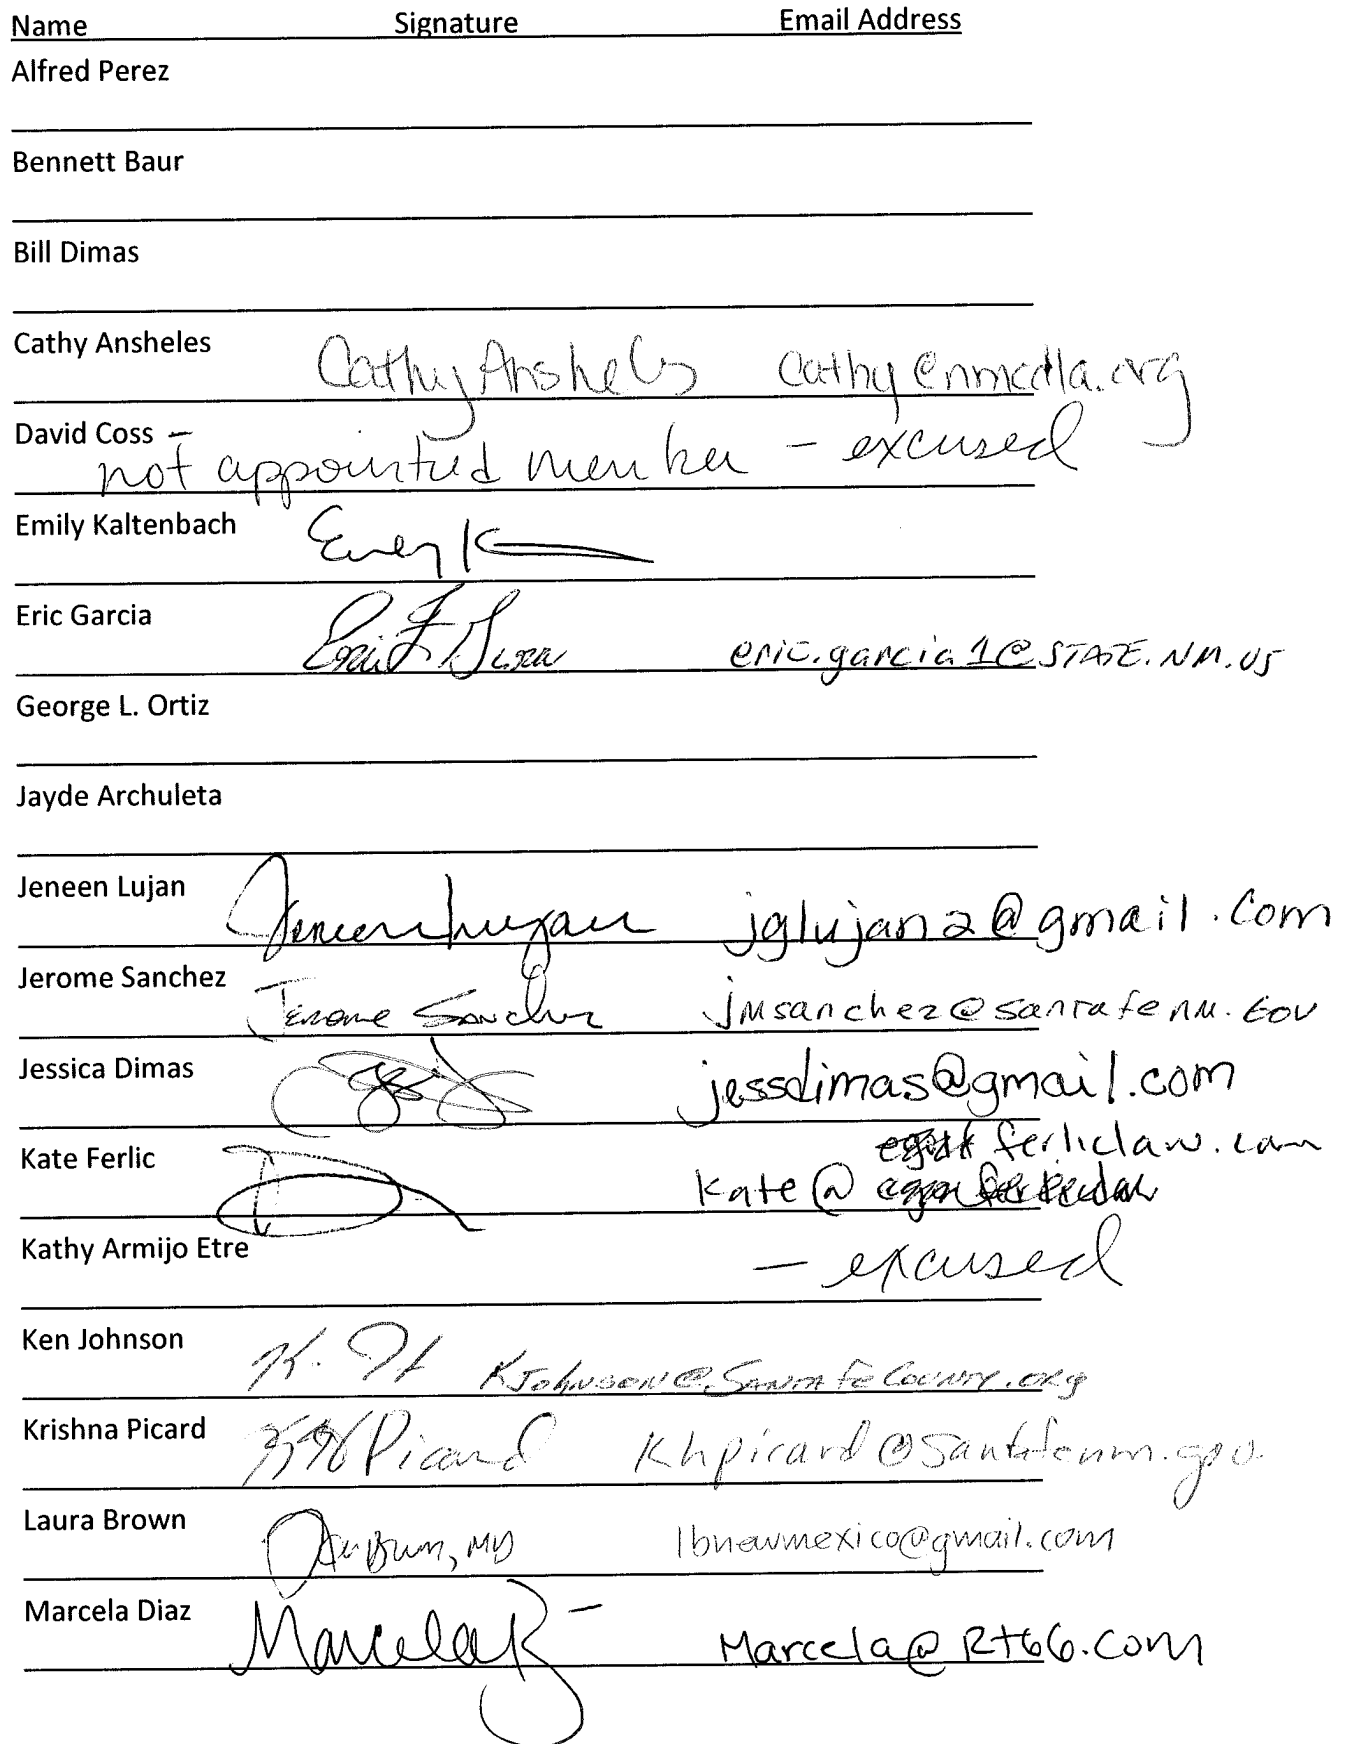 Name Signature Email Address
Alfred Perez
Bennett Baur
Bill Dimas
Cathy Ansheles Cathy Ansheles cathy@nmcdla.org
David Coss –
not appointed member – excused
Emily Kaltenbach Emily K
Eric Garcia eric.garcia1@STATE.NM.US
George L. Ortiz
Jayde Archuleta
Jeneen Lujan Jeneen Lujan jglujan2@gmail.com
Jerome Sanchez Jerome Sanchez jmsanchez@santafenm.gov
Jessica Dimas jessdimas@gmail.com
ferliclaw.com
Kate Ferlic Kate@
Kathy Armijo Etre – excused
Ken Johnson K. KJohnson@SantaFeCounty.org
Krishna Picard Picard khpicard@santafenm.gov
Laura Brown lbnewmexico@gmail.com
Marcela Diaz Marcela Marcela@Rt66.com